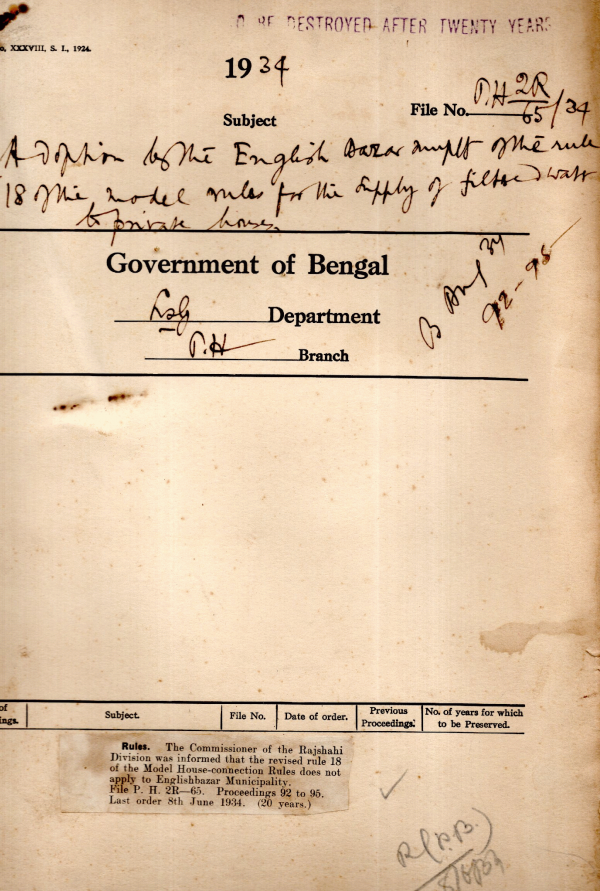 BE DESTROYED AFTER TWENTY YEARS
o. XXXVIII, S. I., 1924.
1934
Subject
File No. P.H 2R/65/34
Adoption by the English Bazar muplt of the rule
18 of the model rules for the supply of filtered water
to private houses.
Government of Bengal
LSG Department
P.H Branch
B 
92-95
of
ings.
Subject.
File No.
Date of order.
Previous
Proceedings.
No. of years for which
to be Preserved.
Rules. The Commissioner of the Rajshahi
Division was informed that the revised rule 18
of the Model House-connection Rules does not
apply to Englishbazar Municipality.
File P. H. 2R—65. Proceedings 92 to 95.
Last order 8th June 1934. (20 years.)